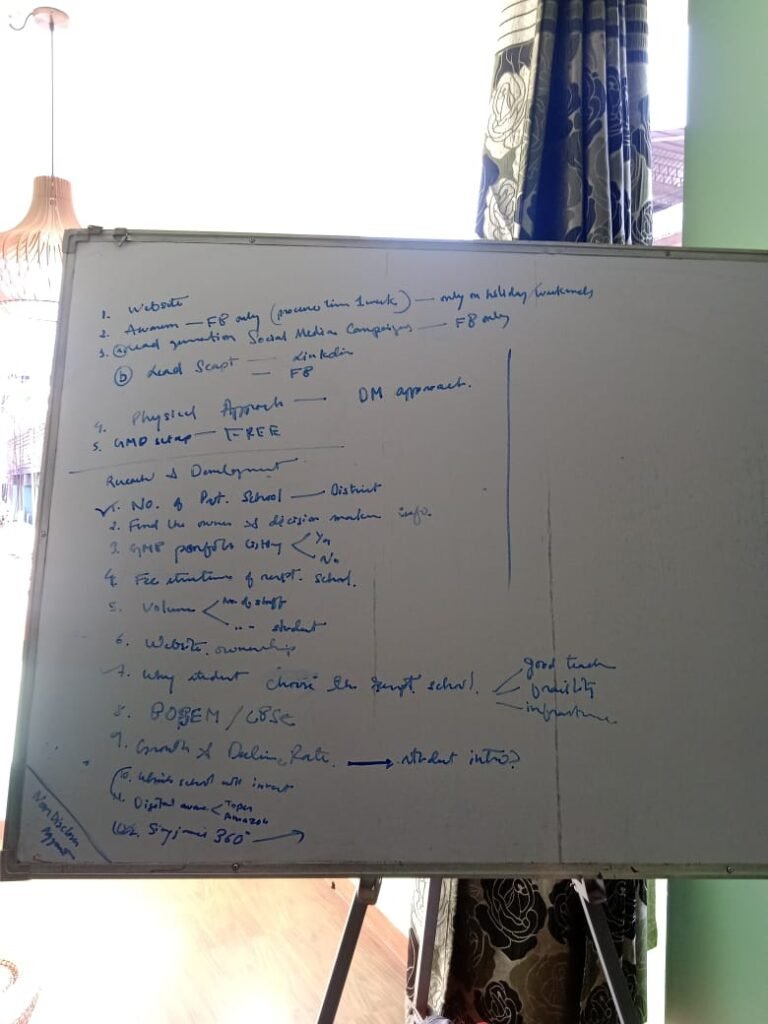 1. Website
2. Awarem — FB only (process time 1 week) — only on holiday/weekends
3. ⓐ Lead generation Social Media Campaigns — FB only
ⓑ Lead Scapt — Linkdin
— FB
4. Physical Approch — DM approach.
5. GMB setup — FREE
Research & Development
1. No. of Pvt. School — District
2. Find the owner & decision maker info.
3. GMB portfolio listing < Yes
No
4. Fee structure of respt. school.
5. Volume < No. of staff
" " student
6. Website ownership
7. Why student choose the respt. school. — good teach
— 
— infrastructure
8. BOSEM / CBSE
9. Growth & Decline Rate. → student intro?
10. Which school will invest
11. Digital aware <
Amazon
12. 360° →
Non Disclosure
Agreement